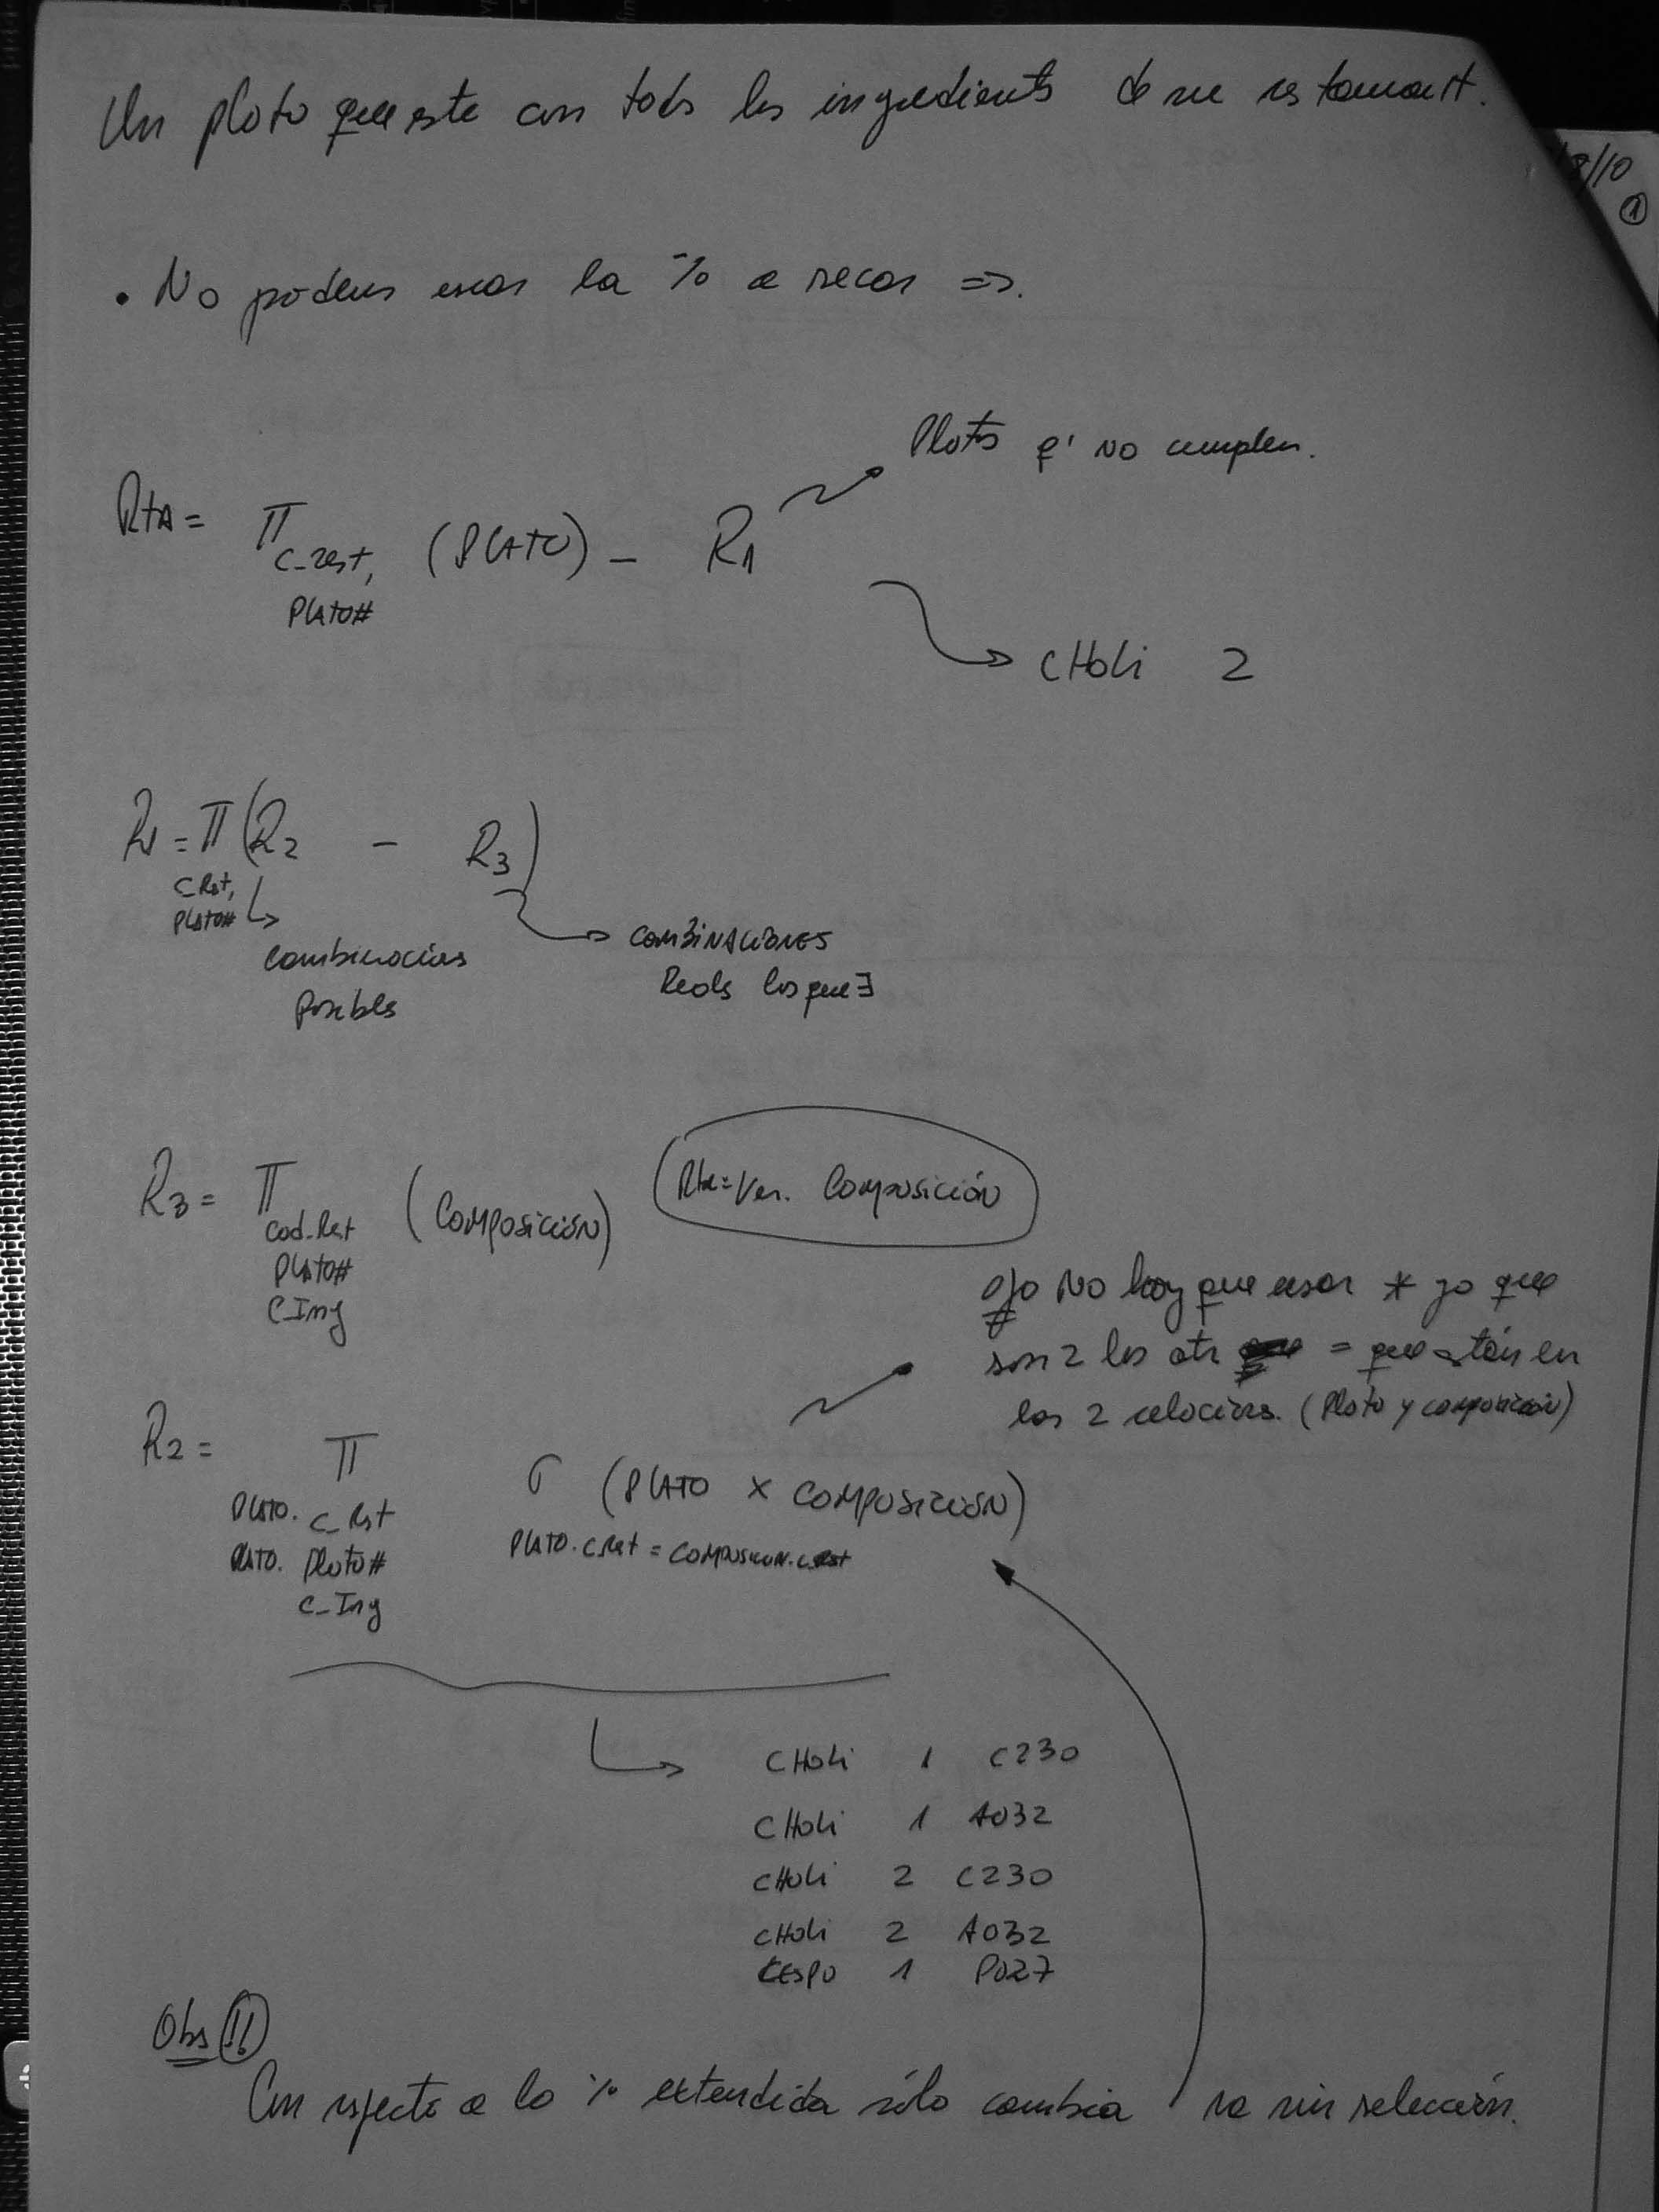 Un plato que este con tods los ingredients de su restaurant.
18/10
①
• No podems usar la % a secas =>.
Plats q' no cumplen.
RtA = π C_rest, PLATO# (PLATO) - R1
CHoli 2
R1 = π C Rst, PLATO# (R2 - R3)
combinacions
Posibles
COMBINACIONES
Reals los que ∃
R3 = π Cod_Rest PLATO# C Ing (COMPOSICIÓN)
Rta = Ver. Composición
Ojo No hay que usar * ya que
son 2 los atr = que están en
las 2 relacions. (Plato y composición)
R2 = π PLATO. C_Rst PLATO. Plato# C_Ing σ PLATO.C_Rst = COMPOSICION.C_Rst (PLATO x COMPOSICIÓN)
CHoli 1 C230
CHoli 1 A032
CHoli 2 C230
CHoli 2 A032
CESPO 1 P027
Obs !!
Con respecto a la % extendida sólo cambia va sin selección.